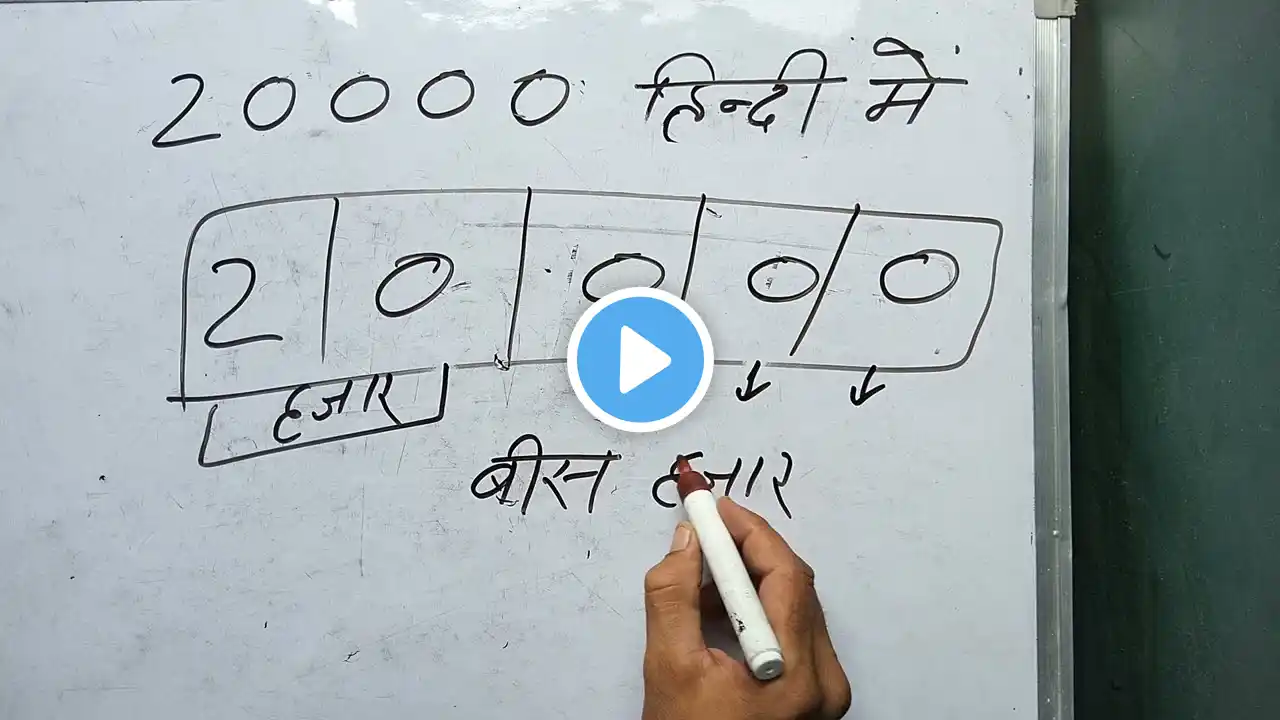 20000 हिन्दी में
2 0 0 0 0
हजार
बीस हजार